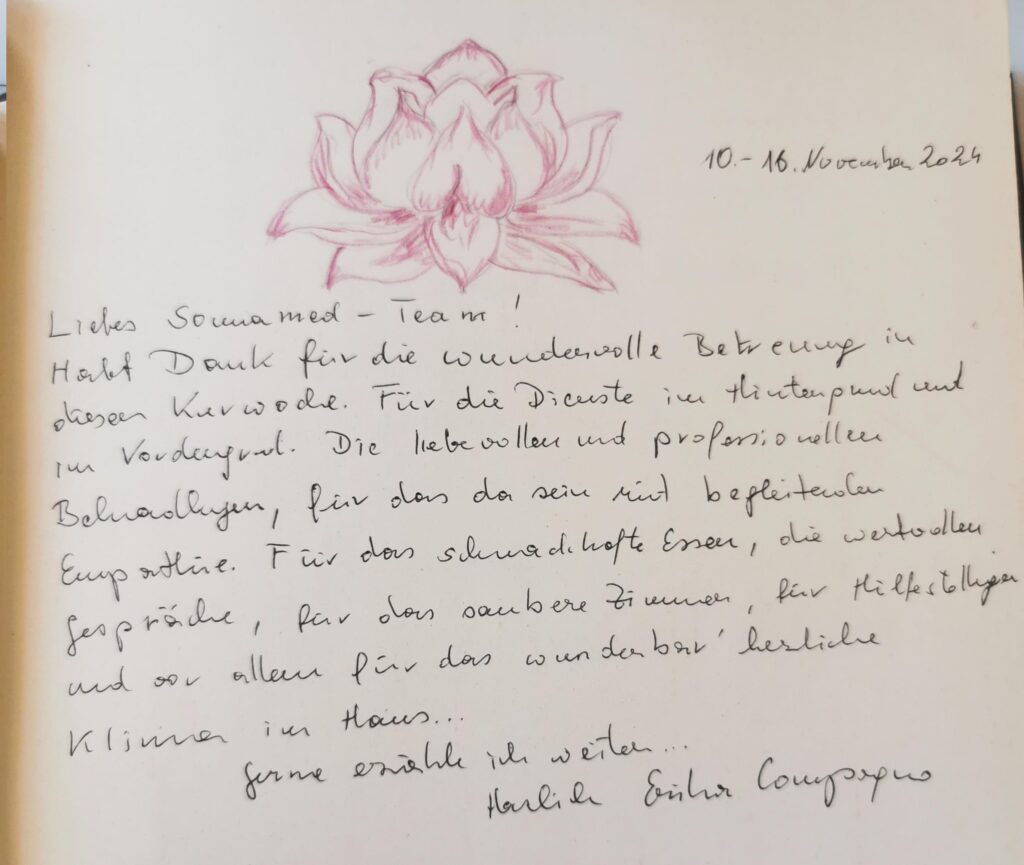 10.-16. November 2024
Liebes Sonnamed-Team!
Habt Dank für die wundervolle Betreuung in
dieser Kurwoche. Für die Dienste im Hintergrund und
im Vordergrund. Die liebevollen und professionellen
Behandlungen, für das da sein mit begleitender
Empathie. Für das schmackhafte Essen, die wertvollen
Gespräche, für das saubere Zimmer, für Hilfestellungen
und vor allem für das wunderbar' herzliche
Klima im Haus...
Gerne erzähle ich weiter...
Herzlich Compagno